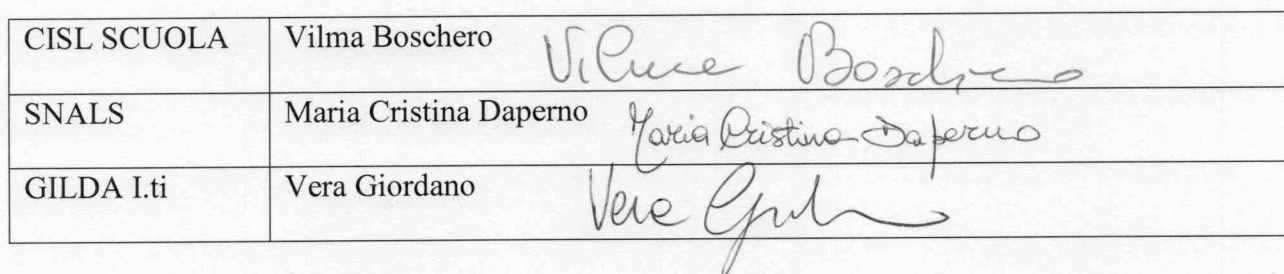 CISL SCUOLA Vilma Boschero Vilma Boschero
SNALS Maria Cristina Daperno Maria Cristina Daperno
GILDA I.ti Vera Giordano Vera